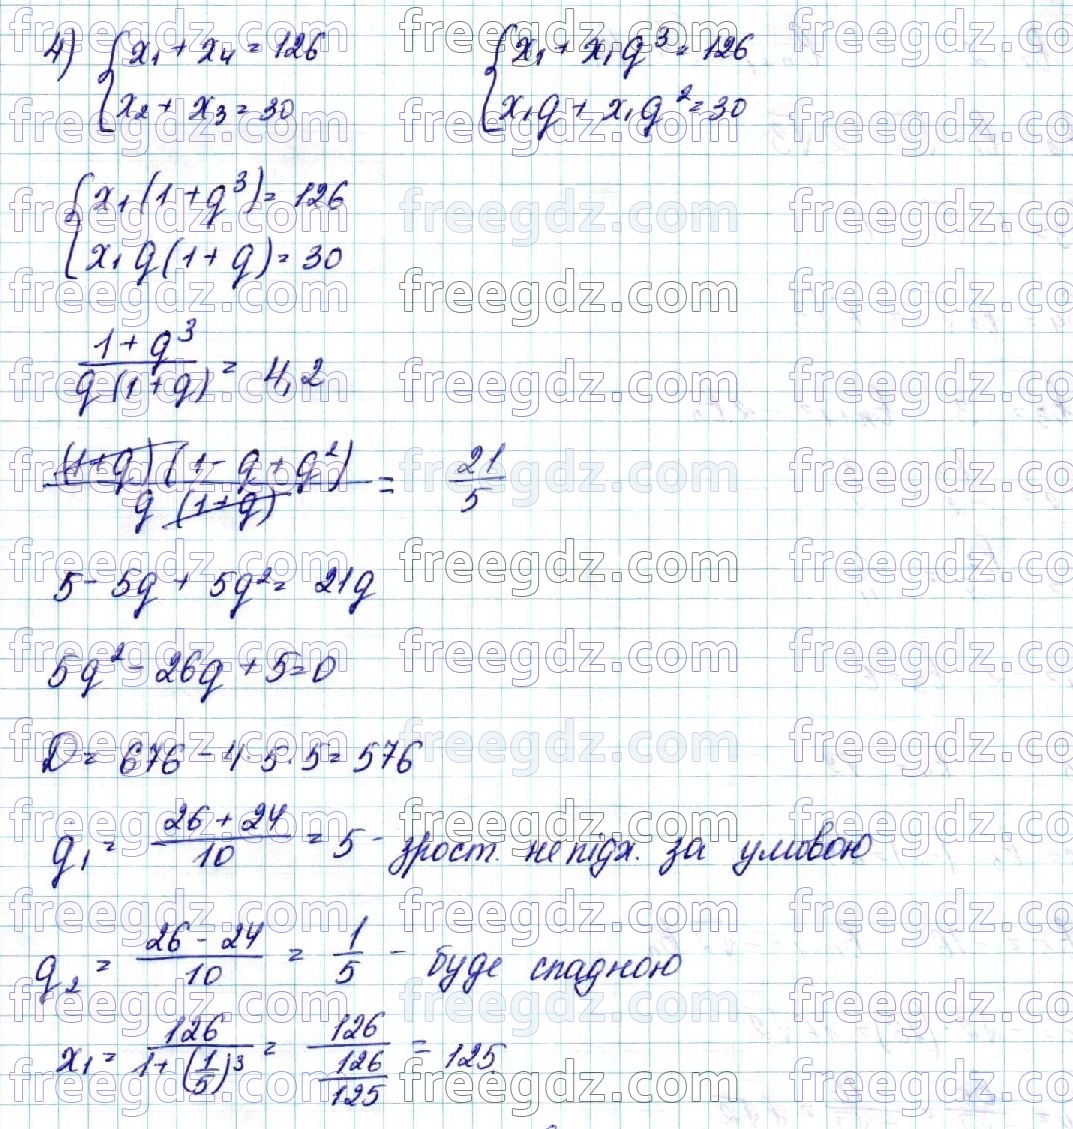 4) { x₁ + x₄ = 126 { x₁ + x₁g³ = 126
{ x₂ + x₃ = 30 { x₁g + x₁g² = 30
{ x₁(1 + g³) = 126
{ x₁g(1 + g) = 30
(1 + g³) / (g(1 + g)) = 4,2
((1+g)(1 - g + g²)) / (g(1+g)) = 21/5
5 - 5g + 5g² = 21g
5g² - 26g + 5 = 0
D = 676 - 4·5·5 = 576
g₁ = (26 + 24)/10 = 5 - зрост. не підх. за умовою
g₂ = (26 - 24)/10 = 1/5 - буде спадною
x₁ = 126/(1 + (1/5)³) = 126/(126/125) = 125.
freegdz.com